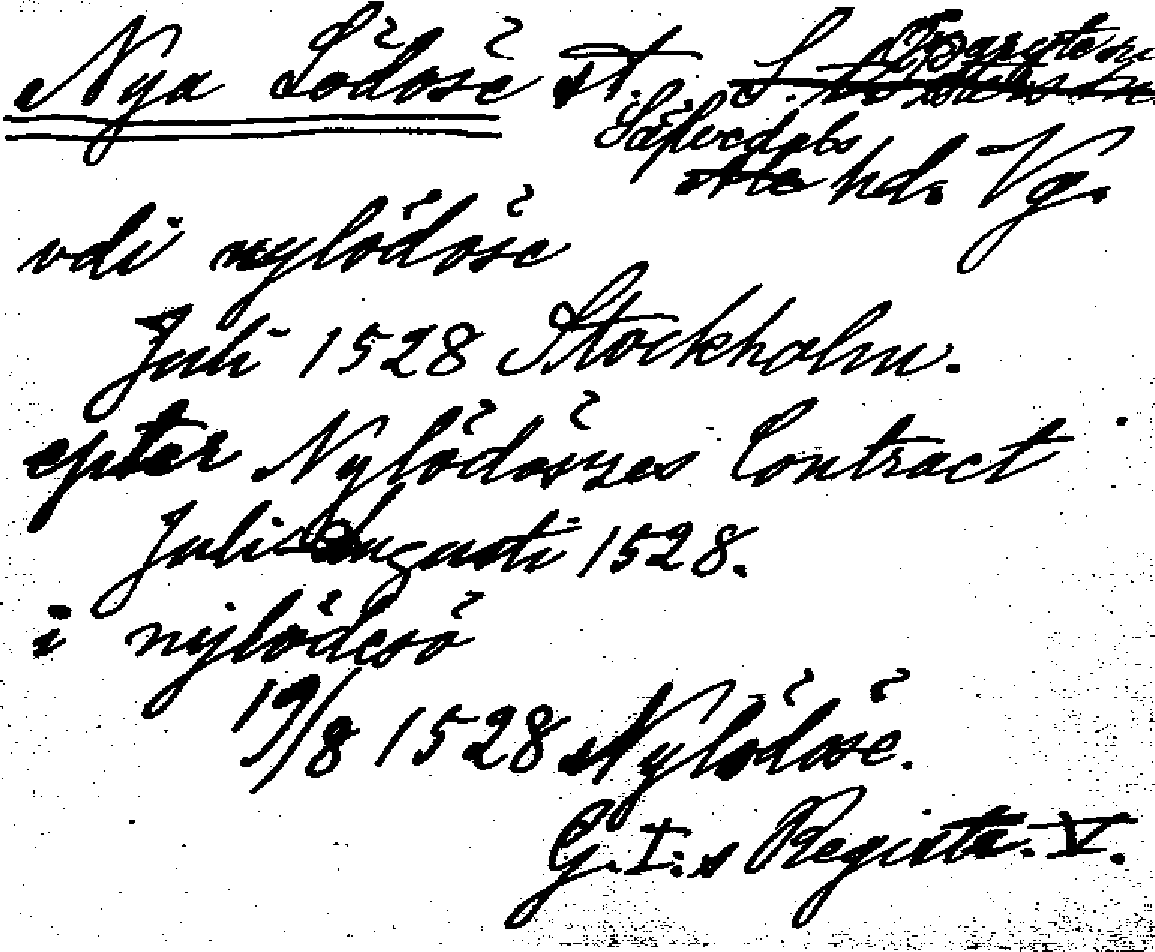 Nya Lödöse st. S.
Säfvedals
Ale hd. Vg.
vdi nylödöse
Juli 1528 Stockholm.
epter Nylödöszes Contract
Juli-Augusti 1528.
i nylödesö
19/8 1528 Nylödöse.
G. I:s Registr. V.